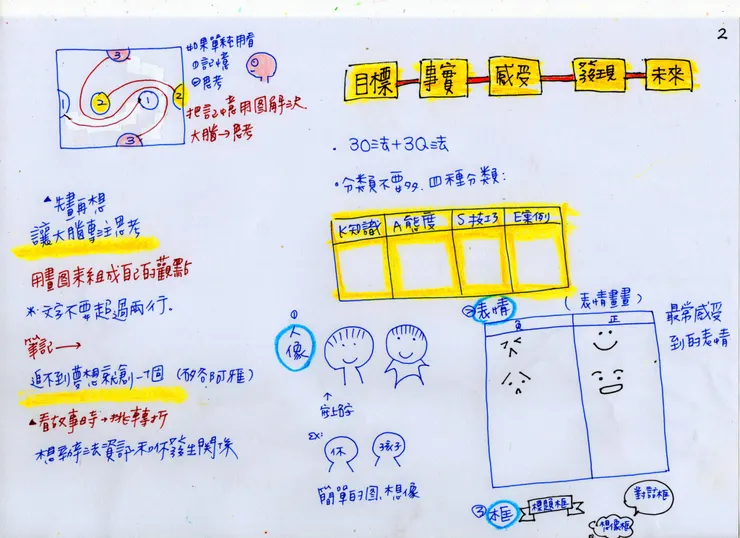 2
3
1
2
1
2
3
如果單純用看
①記憶
②思考
把記憶用圖解決
大腦→思考
▲先畫再想
讓大腦專注思考
用畫圖來組成自己的觀點
※文字不要超過兩行。
筆記→
追不到夢想就創一個(矽谷阿雅)
▲看故事時→挑轉折
想辦法資訊和你發生關係
目標 事實 感受 發現 未來
·3O法+3Q法
·分類不要多,四種分類:
K知識 A態度 S技巧 E案例
①人像
↑
寫上名字
EX:
你 孩子
簡單的圖、想像
②表情(表情畫畫)
負 正
最常感受
到的表情
③框 標題框 想像框 對話框